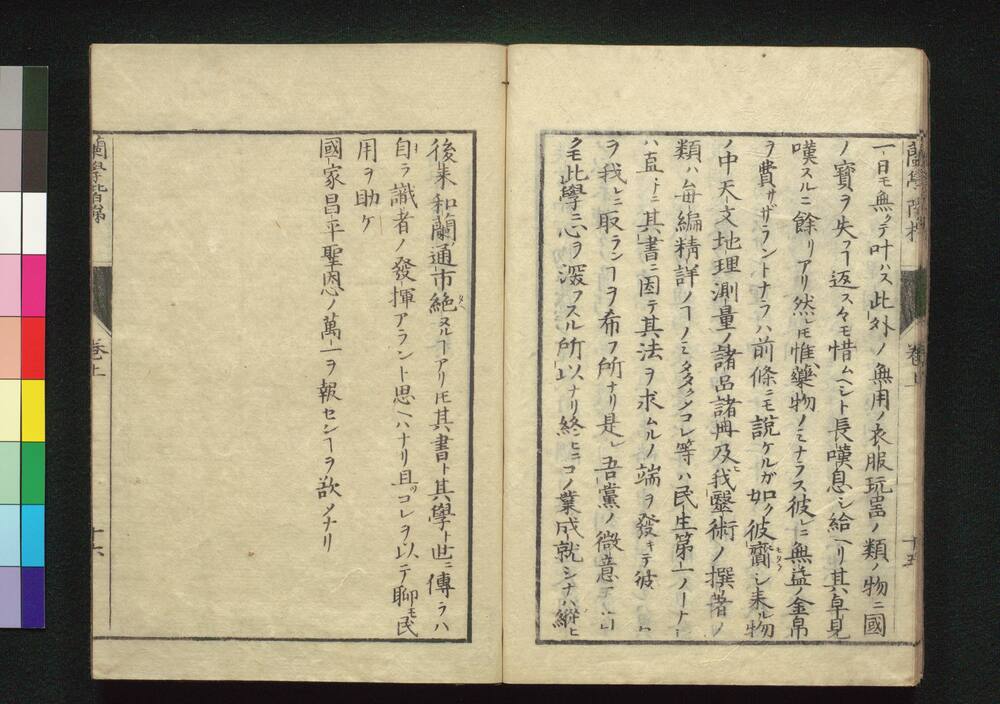 蘭學階梯
巻上
十五
一日モ無クテ叶ハス此外ノ無用ノ衣服玩噐ノ類ノ物ニ國
ノ寶ヲ失フヿ返ス々モ惜ムヘシト長嘆息シ給ヘリ其卓見
嘆スルニ餘リアリ然レ𪜈惟藥物ノミナラス彼レニ無益ノ金帛
ヲ費サザラントナラハ前條ニモ説ケルガ如ク彼齎シ来ル物
ノ中天文地理測量ノ諸噐諸冊及ヒ我醫術ノ撰著ノ
類ハ毎編精詳ノヿノミ タヾ々コレ等ハ民生第一ノヿナレ
ハ直ニ其書ニ因テ其法ヲ求ムルノ端ヲ發キテ彼
ヲ我レニ取ランヿヲ希フ所ナリ是レ吾黨ノ微意ニ
クモ此學ニ心ヲ深フスル所以ナリ終ヒニコノ業成就シナハ縦ヒ
後来和蘭通市絶ヌルヿアリ𪜈其書ト其學ト世ニ傳ラハ
自ラ識者ノ發揮アラント思ヘハナリ且ツコレヲ以テ聊モ民
用ヲ助ケ
國家昌平聖恩ノ萬一ヲ報センヿヲ欲メナリ
蘭學階梯
巻上
十六